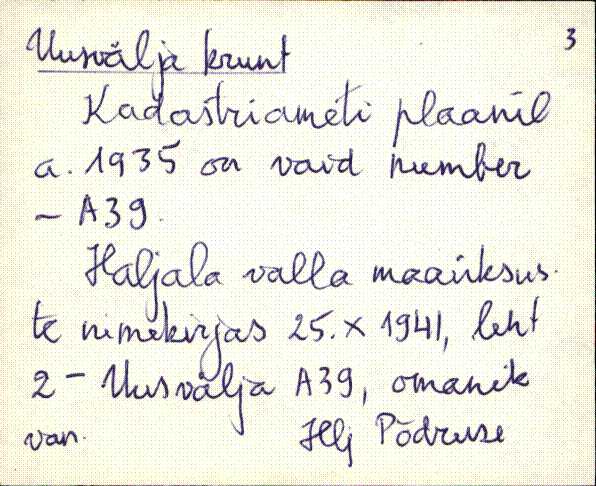 3
Uusvälja krunt
Kadastriameti plaanil
a. 1935 on vaid number
– A39.
Haljala valla maaüksus-
te nimekirjas 25.X 1941, leht
2 – Uusvälja A39, omanik
van. Hlj Põdruse